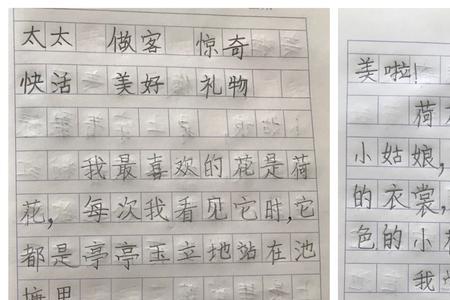 太太 做客 惊奇
快活 美好 礼物
我最喜欢的花是荷
花,每次我看见它时,它
都是亭亭玉立地站在池
塘里
美啦!
荷
小姑娘,
的衣裳,
色的小
我